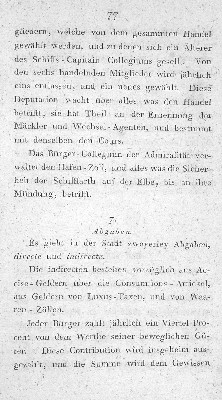 77
gliedern, welche von dem gesammten Handel
gewählt werden, und zu denen sich ein Alterer
des Schiffs-Capitain Collegiums gesellt. Von
den sechs handelnden Mitglieder wird jährlich
eins entlassen, und ein neues gewählt. Diese
Deputation wacht über alles was den Handel
betrifft, sie hat Theil an der Ernennung der
Mäckler und Wechsel-Agenten, und bestimmt
mit denselben den Cours.
Das Bürger-Collegium der Admiralität ver-
waltet den Hafen-Zoll, und alles was die Sicher-
heit der Schiffarth auf der Elbe, bis an ihre
Mündung, betrifft.
7.
Abgaben.
Es giebt in der Stadt zweyerley Abgaben,
directe und indirecte.
Die indirecten bestehen vorzüglich aus Ac-
cise-Geldern über die Consumtions-Artickel,
aus Geldern von Luxus-Taxen, und von Waa-
ren-Zöllen.
Jeder Bürger zahlt jährlich ein Viertel Pro-
cent von dem Werthe seiner beweglichen Gü-
ter. Diese Contribution wird insgeheim aus-
gezahlt, und die Summe wird dem Gewissen